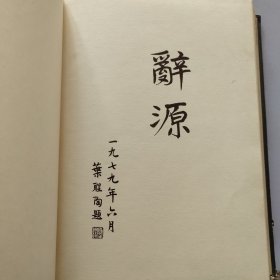 辭源
一九七九年六月
葉聖陶題